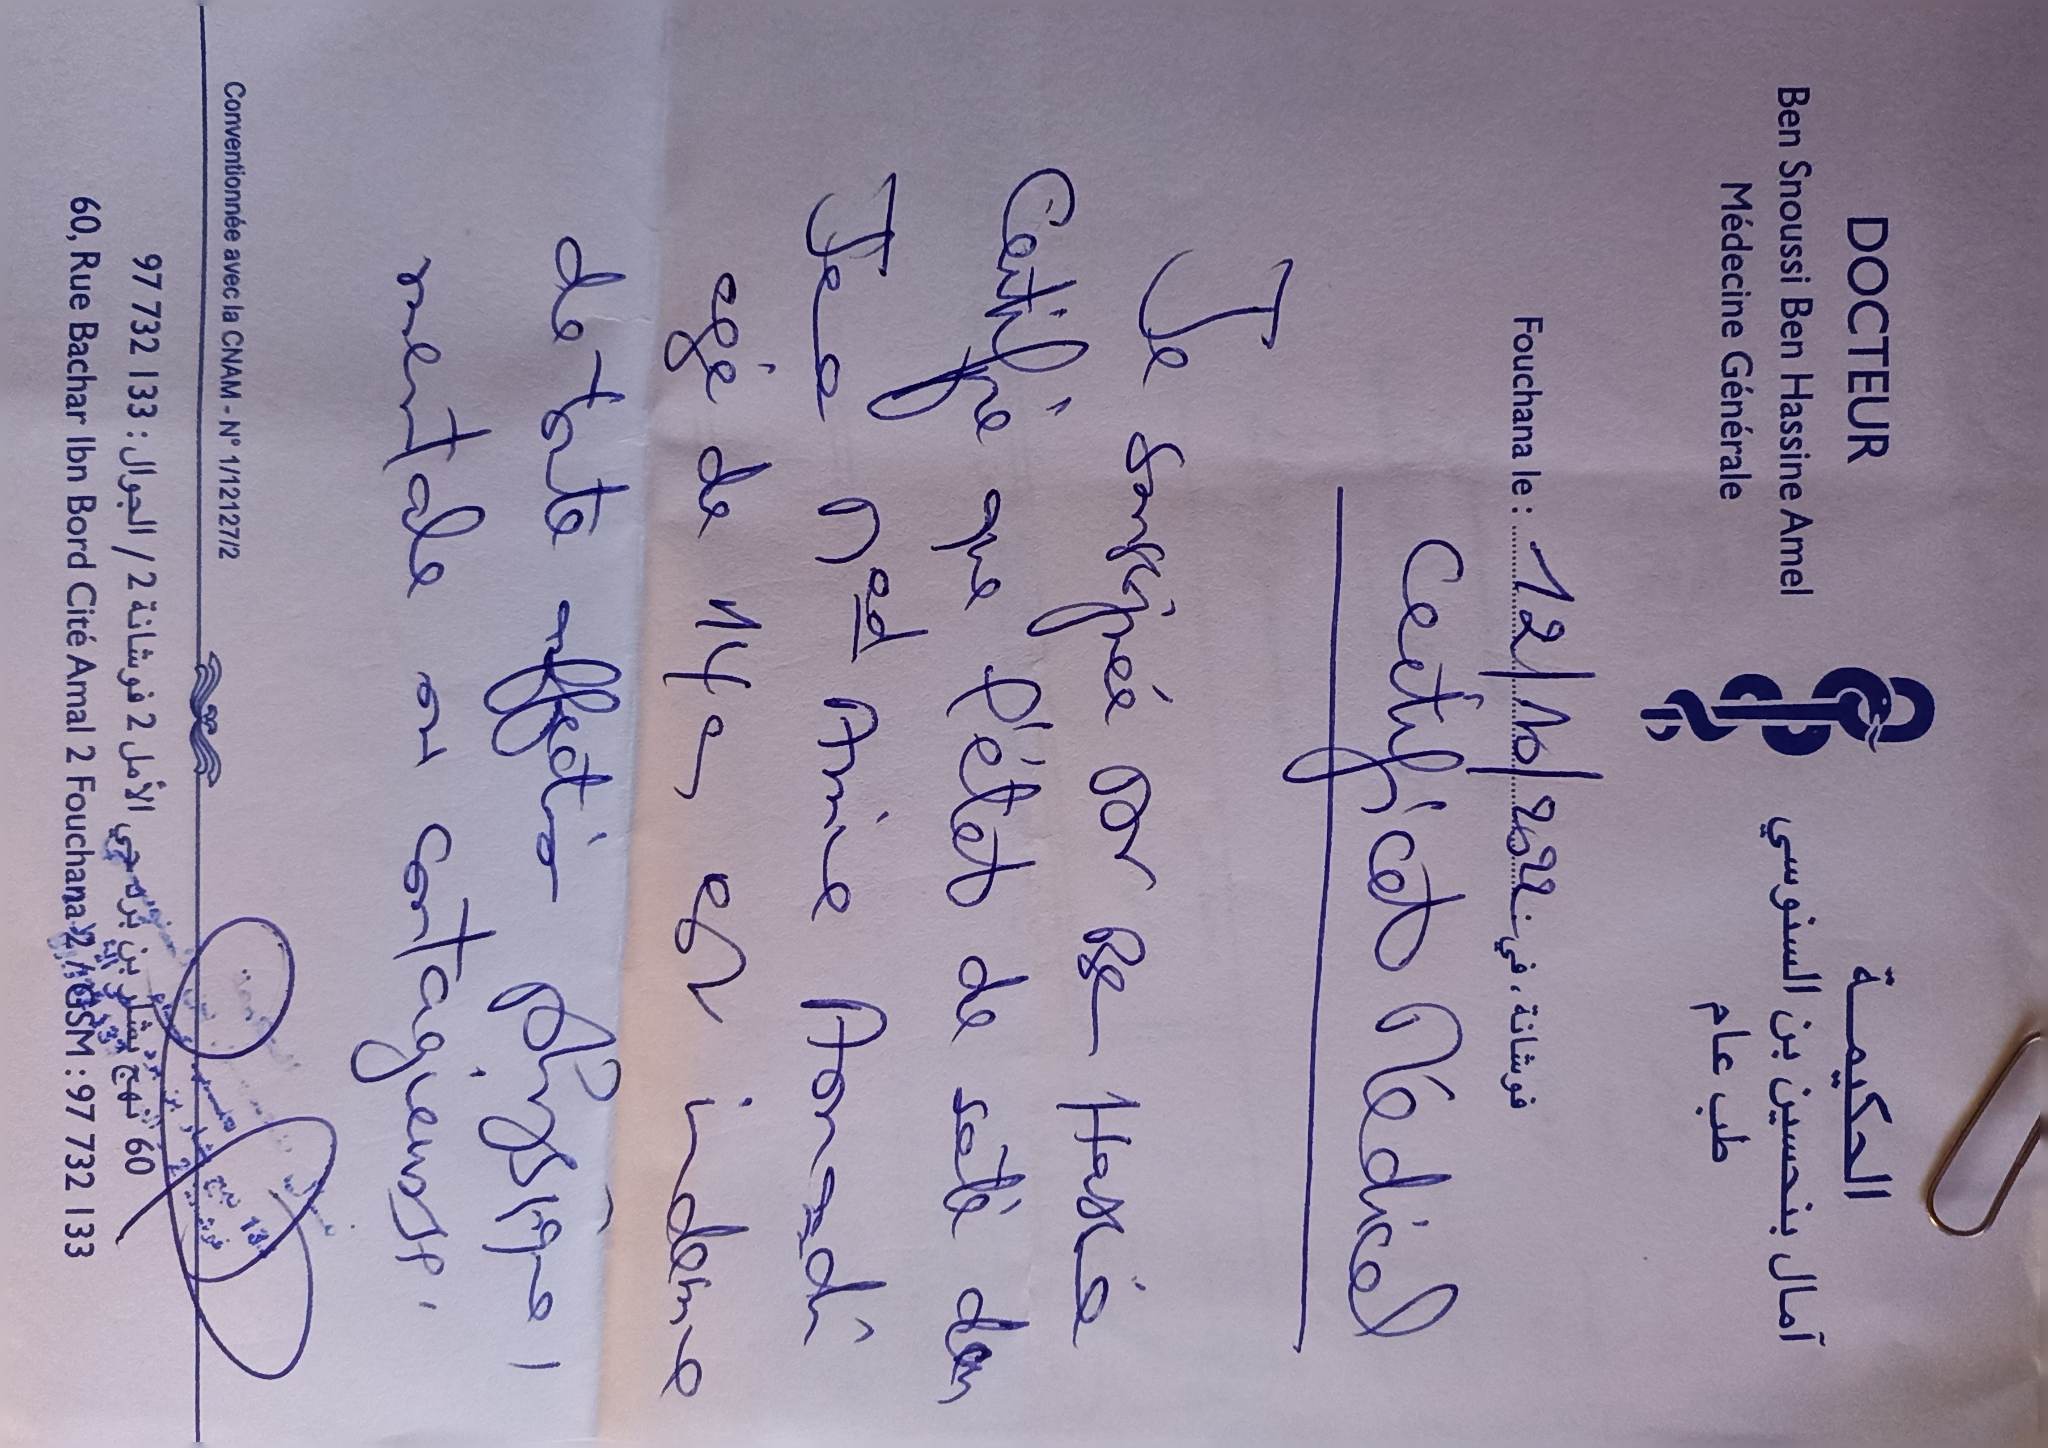 DOCTEUR
Ben Snoussi Ben Hassine Amel
Médecine Générale
الحكيمـــة
آمال بنحسين بن السنوسي
طب عام
Fouchana le : 12/10/2022 فوشانة ، في
Certificat Médical
Je soussignée Dr Ben Hassine
Certifie que l'état de santé de
Med Amine
agé de 14 a est indemne
de toute affection physique,
mentale ou contagieuse.
Conventionnée avec la CNAM - N° 1/12127/2
60 نهج بشار بن برد حي الأمل 2 فوشانة 2 / الجوال : 97 732 133
60, Rue Bachar Ibn Bord Cité Amal 2 Fouchana 2 / GSM : 97 732 133